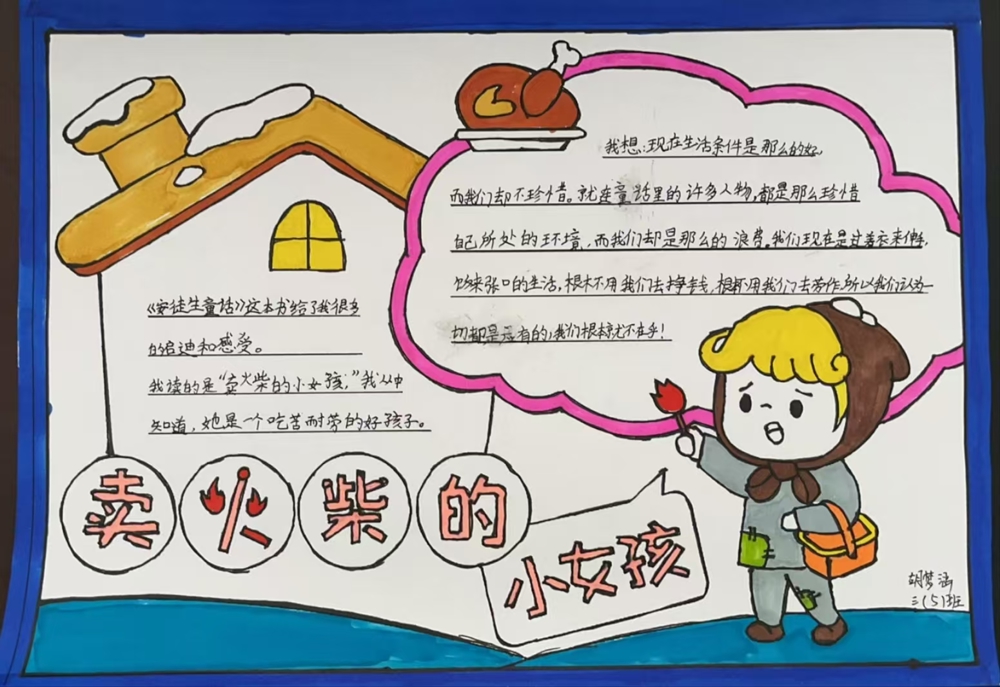 《安徒生童话》这本书给了我很多
的启迪和感受。
我读的是“卖火柴的小女孩，”我从中
知道，她是一个吃苦耐劳的好孩子。
我想：现在生活条件是那么的好，
而我们却不珍惜。就连童话里的许多人物，都是那么珍惜
自己所处的环境，而我们却是那么的浪费。我们现在是过着衣来伸手，
饭来张口的生活，根本不用我们去挣钱，根本不用我们去劳作，所以我们认为一
切都是应有的，我们根本就不在乎！
卖火柴的
小女孩
胡梦涵
三（5）班